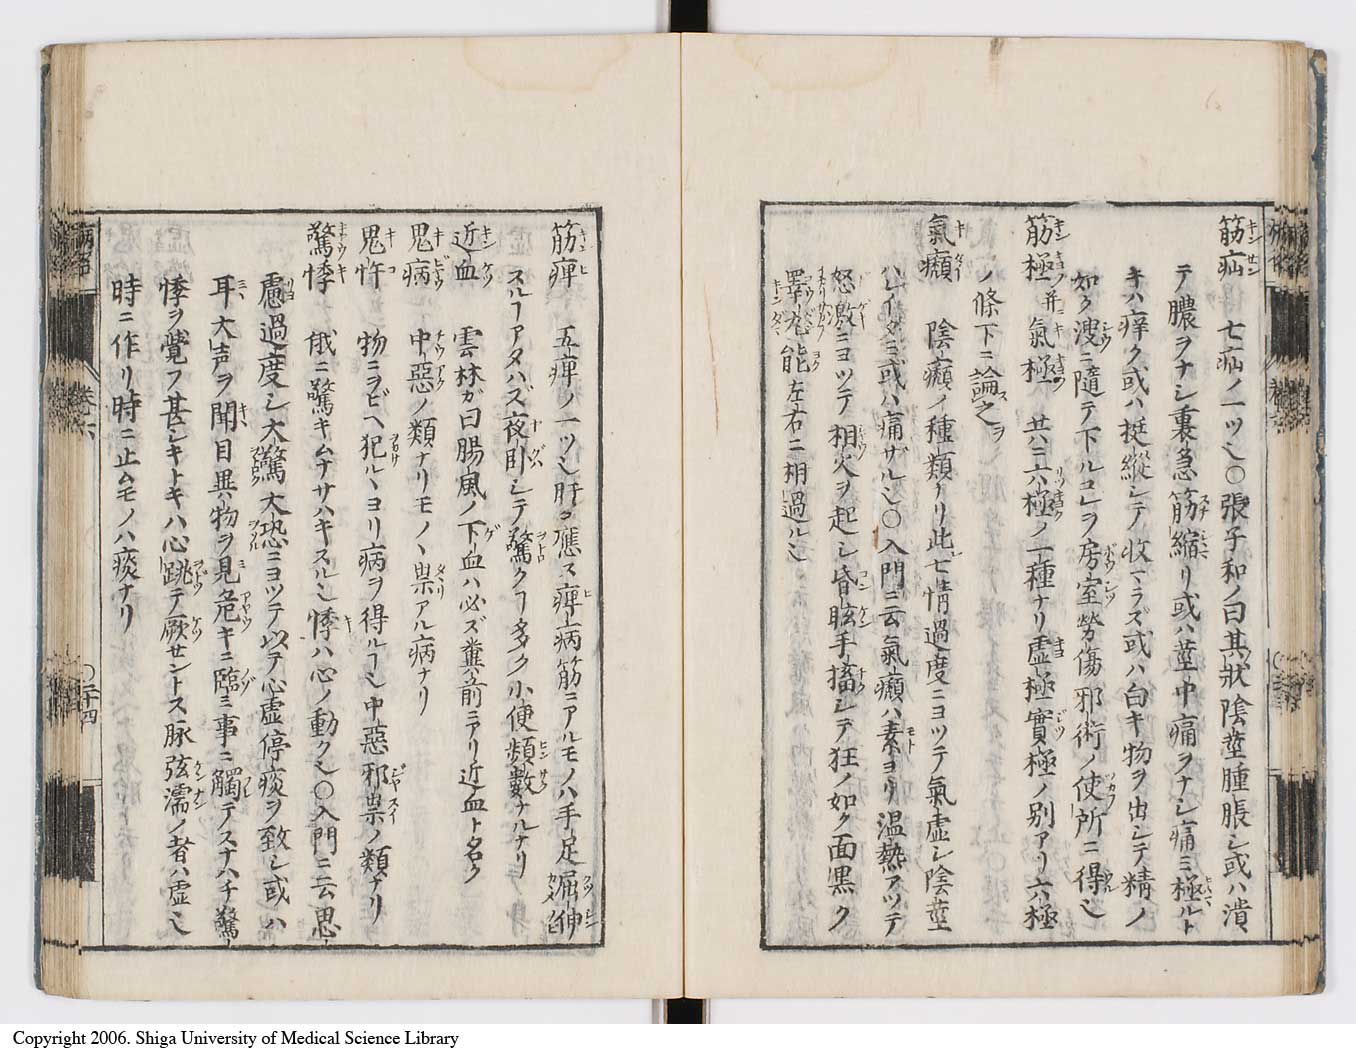 筋疝 七疝ノ一ツ也○張子和ノ曰其狀陰莖腫脹シ或ハ潰
テ膿ヲナシ裏急筋縮リ或ハ莖中痛ヲナシ痛ミ極ルト
キハ痒ク或ハ挺縱シテ收マラズ或ハ白キ物ヲ出シテ精ノ
如ク溲ニ隨テ下ルコレヲ房室勞傷邪術ノ使所ニ得也
筋極并氣極 共ニ六極ノ一種ナリ虛極實極ノ別アリ六極
ノ條下ニ論之
氣㿗 陰㿗ノ種類ナリ此七情過度ニヨツテ氣虛シ陰莖
ハレイタミ或ハ痛ザル也○入門ニ云氣㿗ハ素ヨリ温熱アツテ
怒激ニヨツテ相火ヲ起シ昏眩手搐シテ狂ノ如ク面黒ク
睪丸能左右ニ相過ル也
筋痺 五痺ノ一ツ也肝ニ應ス痺病筋ニアルモノハ手足屈伸
スルヿアタハズ夜卧シテ驚クヿ多ク小便頻數ナルナリ
近血 雲林ガ曰腸風ノ下血ハ必ズ糞前ニアリ近血ト名ク
鬼病 中惡ノ類ナリモノヽ祟アル病ナリ
鬼忤 物ニヲビヘ犯ルヽヨリ病ヲ得ルヿ也中惡邪祟ノ類ナリ
驚悸 俄ニ驚キムナサハキスル也悸ハ心ノ動ク也○入門ニ云思
慮過度シ大驚大恐ニヨツテ以テ心虛停痰ヲ致シ或ハ
耳大声ヲ聞目異物ヲ見危キニ臨ミ事ニ觸テスナハチ驚
悸ヲ覺フ甚シキトキハ心跳テ厥セントス脉弦濡ノ者ハ虛也
時ニ作リ時ニ止ムモノハ痰ナリ
卷六
○二十四
Copyright 2006. Shiga University of Medical Science Library